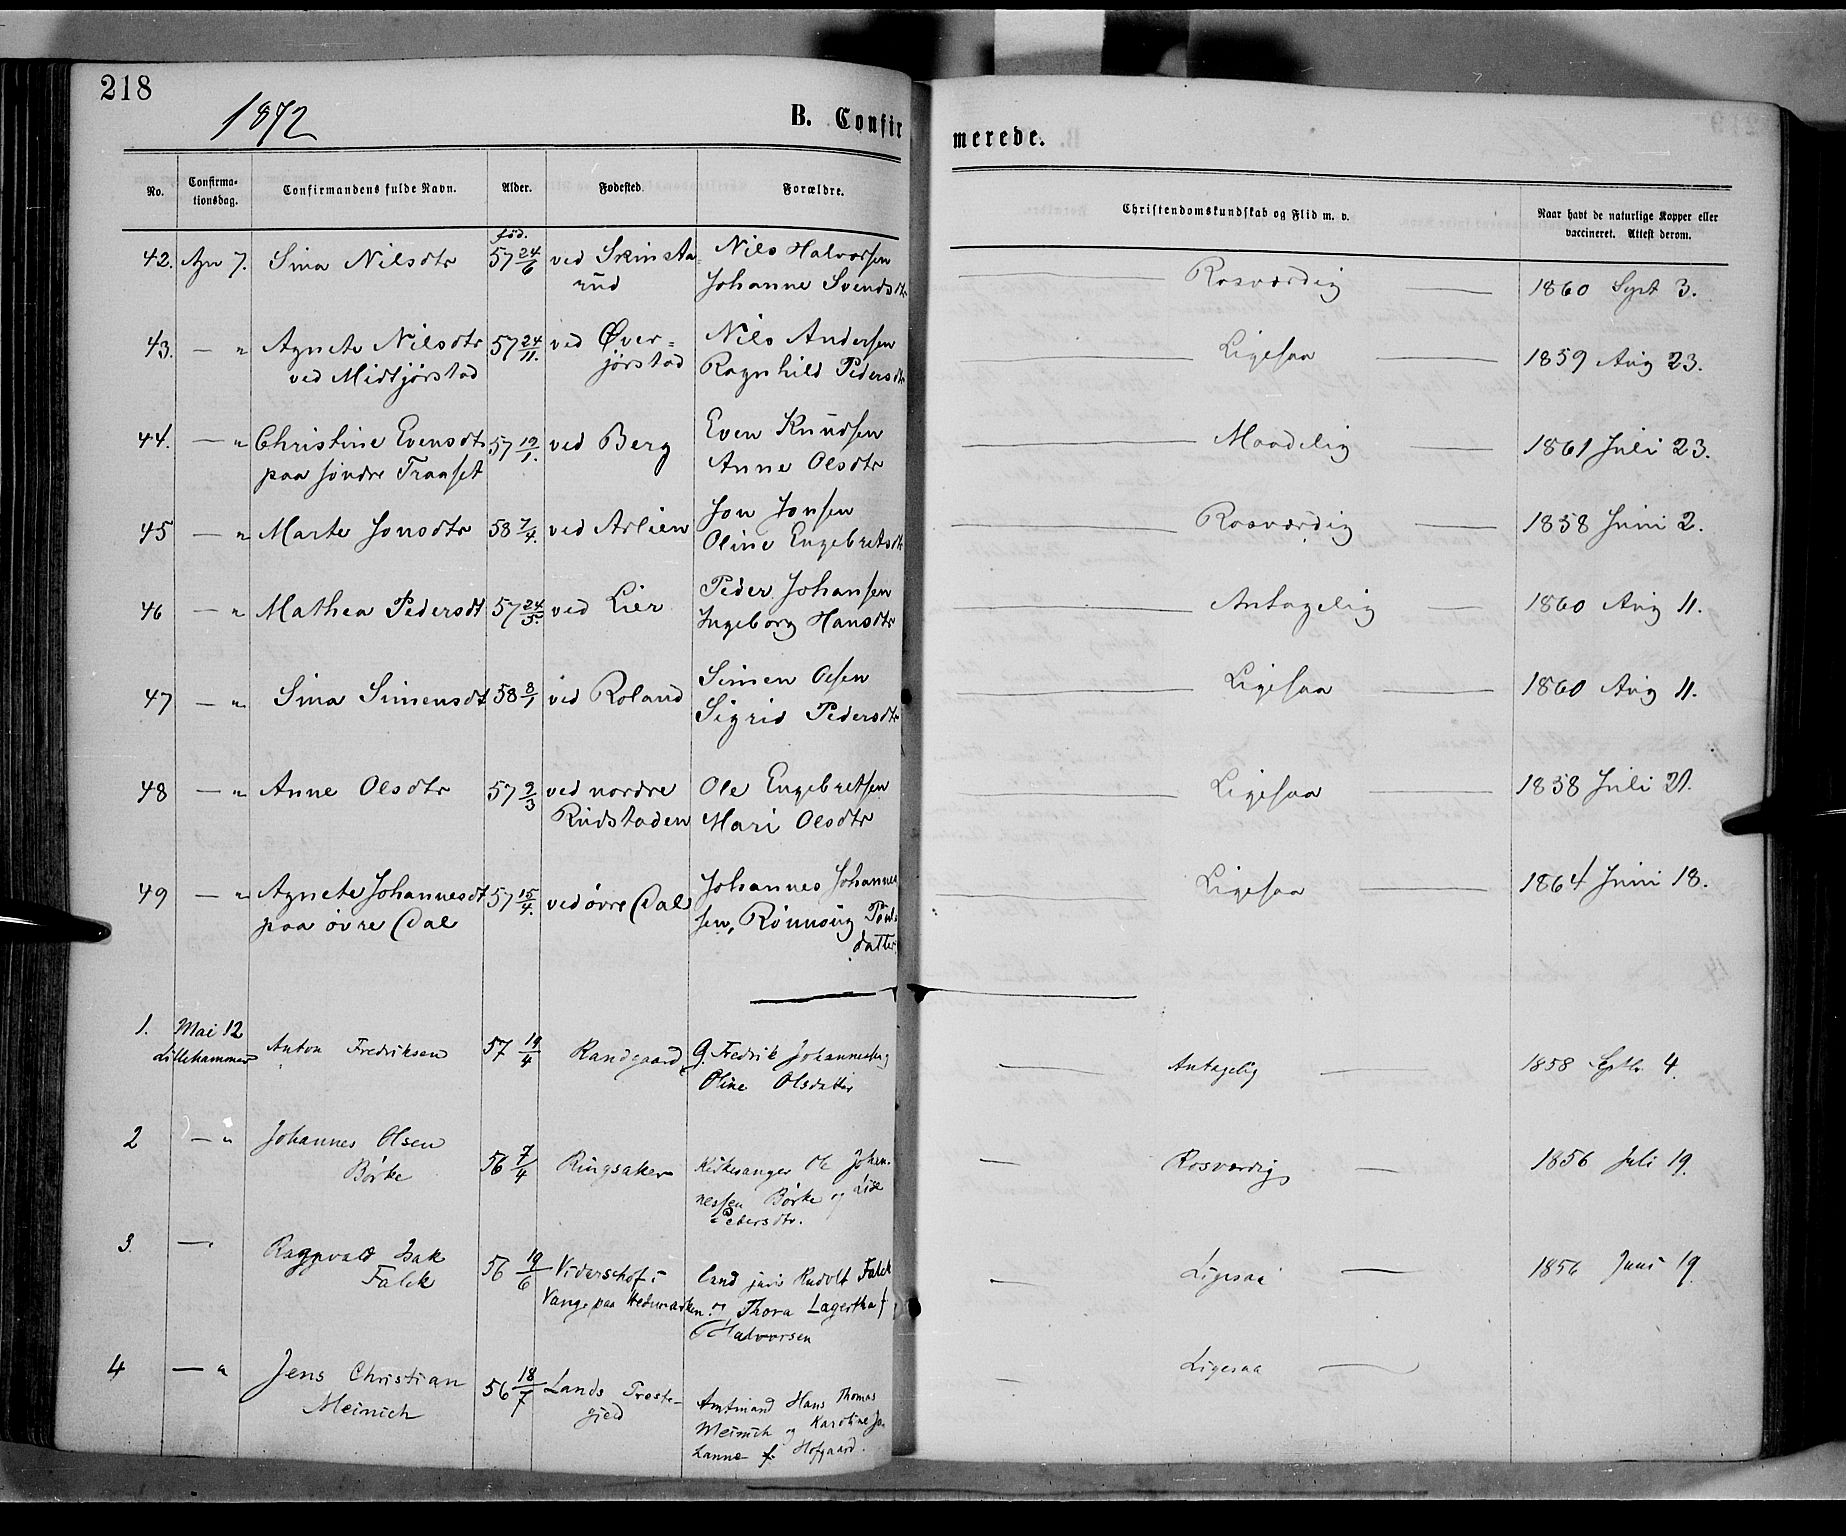 218
1872
B. Confirmerede.
No. Confirmationsdag. Confirmandens fulde Navn. Alder. Fødested. Forældre. Christendomskundskab og Flid m. v. Naar havt de naturlige Kopper eller vaccineret. Attest derom.
fød.
42. Apr 7. Sina Nilsdtr 57 24/6 ved Nils Halvorsen Rosværdig 1860 Sept 3.
rud Johanne Svendsdtr
43. — " Agnete Nilsdtr 57 24/11. ved Øver= Nils Andersen Ligesaa 1859 Aug 23.
ved Midtjørstad jørstad Ragnhild Pedersdtr
44. — " Christine Evensdtr 57 19/1. ved Berg Even Knudsen Maadelig 1861 Juli 23.
paa søndre Traaset Anne Olsdtr
45 — " Marte Jonsdtr 58 7/4. ved Aslien Jon Jonsen Rosværdig 1858 Juni 2.
Oline Engebretsdtr
46 — " Mathea Pedersdt 57 24/3. ved Lier Peder Johansen Antagelig 1860 Aug 11.
Ingeborg Hansdtr
47 — " Sina Simensdt 58 8/1 ved Roland Simen Olsen Ligesaa 1860 Aug 11.
Sigrid Pedersdtr
48 — " Anne Olsdtr 57 2/3 ved nordre Ole Engebretsen Ligesaa 1858 Juli 21.
Rudstaden Mari Olsdtr
49 — " Agnete Johannesdt 57 15/4. ved øvre Dal Johannes Johannes Ligesaa 1864 Juni 18.
paa øvre Dal sen, Rønnoug
datter
1. Mai 12 Anton Fredriksen 57 19/4 Randgaard G. Fredrik Johannesen og Antagelig — 1858 Septbr. 4.
Lillehammer Oline Olsdatter
2 — " Johannes Olsen 56 7/4 Ringsaker Kirkesanger Ole Johan- Rosværdig — 1856 Juli 19.
Børke nessen Børke og Lise
Pedersdtr.
3. — " Ragnvald Isak 56 19/6 Viderschof i Cand juris Rudolf Falck Ligesaa — 1856 Juni 19.
Falck Vang paa Hedemarken. og Thora Lagertha f
Halvorsen
4 — " Jens Christian 56 18/7 Lands Præste- Amtmand Hans Thomas Ligesaa —
Meinich gjeld Meinich og Karoline Jo
hanne f. Hofgaard.